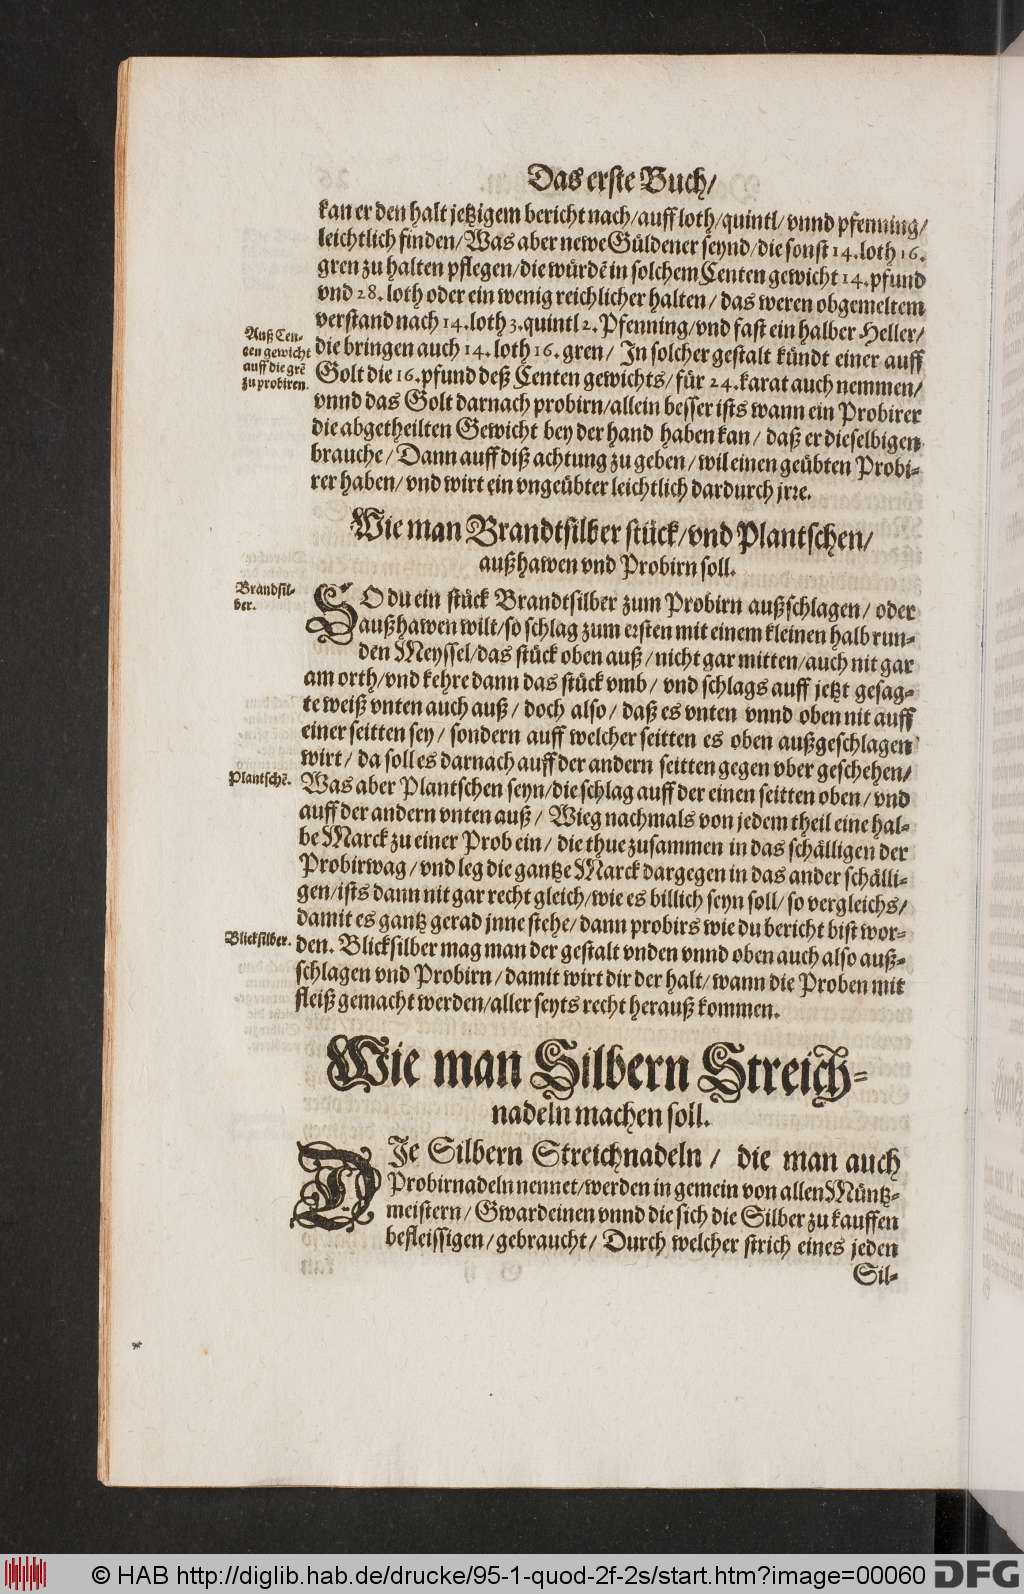 Das erste Buch/
kan er den halt jetzigem bericht nach/auff loth/quintl/vnnd pfenning/
leichtlich finden/Was aber newe Güldener seynd/die sonst 14.loth 16.
gren zu halten pflegen/die würdẽ in solchem Centen gewicht 14.pfund
vnd 28.loth oder ein wenig reichlicher halten/das weren obgemeltem
verstand nach 14.loth 3.quintl 2.Pfenning/vnd fast ein halber Heller/
Auß Cen-
ten gewicht
auff die grẽ
zu probiren.
die bringen auch 14.loth 16.gren/ In solcher gestalt kündt einer auff
Golt die 16.pfund deß Centen gewichts/für 24.karat auch nemmen/
vnnd das Golt darnach probirn/allein besser ists wann ein Probirer
die abgetheilten Gewicht bey der hand haben kan/ daß er dieselbigen
brauche/Dann auff diß achtung zu geben/wil einen geübten Probi-
rer haben/vnd wirt ein vngeübter leichtlich dardurch jrre.
Wie man Brandtsilber stück/vnd Plantschen/
außhawen vnd Probirn soll.
Brandsil-
ber.
SO du ein stück Brandtsilber zum Probirn außschlagen/ oder
außhawen wilt/so schlag zum ersten mit einem kleinen halb run-
den Meyssel/das stück oben auß/nicht gar mitten/auch nit gar
am orth/vnd kehre dann das stück vmb/ vnd schlags auff jetzt gesag-
te weiß vnten auch auß/ doch also/ daß es vnten vnnd oben nit auff
einer seitten sey/ sondern auff welcher seitten es oben außgeschlagen
wirt/ da soll es darnach auff der andern seitten gegen vber geschehen/
Plantschẽ.
Was aber Plantschen seyn/die schlag auff der einen seitten oben/vnd
auff der andern vnten auß/ Wieg nachmals von jedem theil eine hal-
be Marck zu einer Prob ein/ die thue zusammen in das schälligen der
Probirwag/vnd leg die gantze Marck dargegen in das ander schälli-
gen/ists dann nit gar recht gleich/wie es billich seyn soll/so vergleichs/
damit es gantz gerad jnne stehe/dann probirs wie du bericht bist wor-
Blicksilber.
den. Blicksilber mag man der gestalt vnden vnnd oben auch also auß-
schlagen vnd Probirn/damit wirt dir der halt/wann die Proben mit
fleiß gemacht werden/aller seyts recht herauß kommen.
Wie man Silbern Streich-
nadeln machen soll.
DIe Silbern Streichnadeln/ die man auch
Probirnadeln nennet/werden in gemein von allen Müntz-
meistern/Gwardeinen vnnd die sich die Silber zu kauffen
befleissigen/gebraucht/Durch welcher strich eines jeden
Sil-
© HAB http://diglib.hab.de/drucke/95-1-quod-2f-2s/start.htm?image=00060
DFG